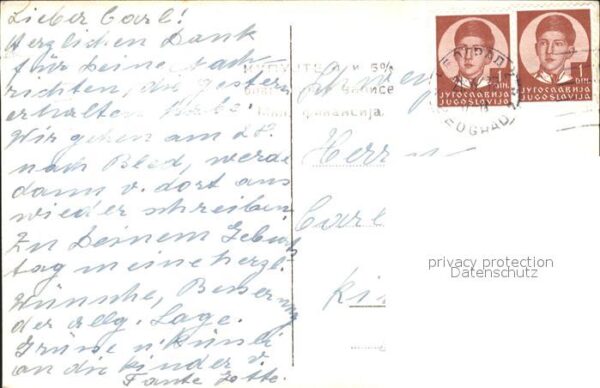 Lieber Carl!
Herzlichen Dank
für Deine Nach
richten, die gestern
erhalten habe.
Wir gehen am 28.
nach Bled, werde
dann v. dort aus
wieder schreiben
Zu Deinem Geburts
tag meine herzl.
Wünsche, Besserung
der allg. Lage.
Grüsse u. Küssli
an die Kinder v.
Tante Lotte.
5%
Herrn
Carl
Ki
1 DIN.
ЈУГОСЛАВИЈА
JUGOSLAVIJA
1 DIN.
ЈУГОСЛАВИЈА
JUGOSLAVIJA
БЕОГРАД
BEOGRAD
privacy protection
Datenschutz